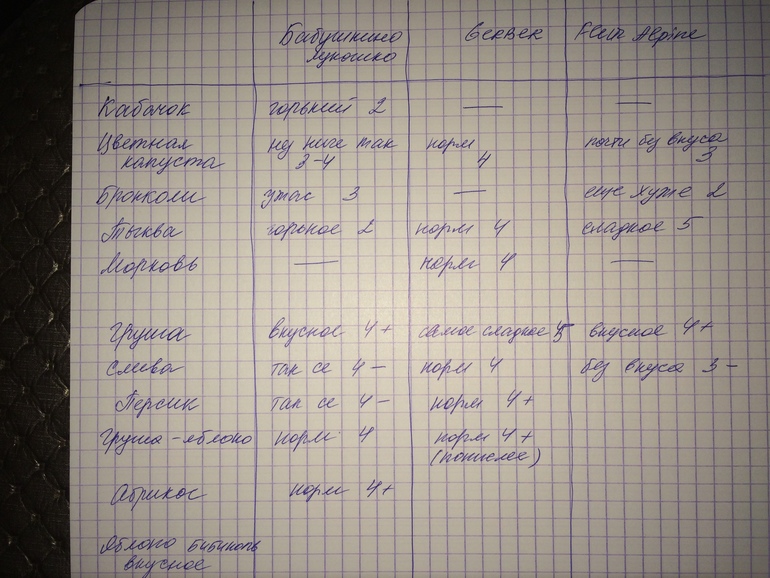 Бабушкино Gerber Fleur Alpine
лукошко
Кабачок горький 2 — —
Цветная ну ниче так норм почти без вкуса
капуста 3-4 4 3
Брокколи ужас 3 — еще хуже 2
Тыква горькое 2 норм 4 сладкое 5
Морковь — норм 4 —
Груша вкусное 4+ самое сладкое 5 вкусное 4+
Слива так се 4- норм 4 без вкуса 3-
Персик так се 4- норм 4+
Груша-яблоко норм 4 норм 4+
(покислее)
Абрикос норм 4+
Яблоко бибиколь
вкусное